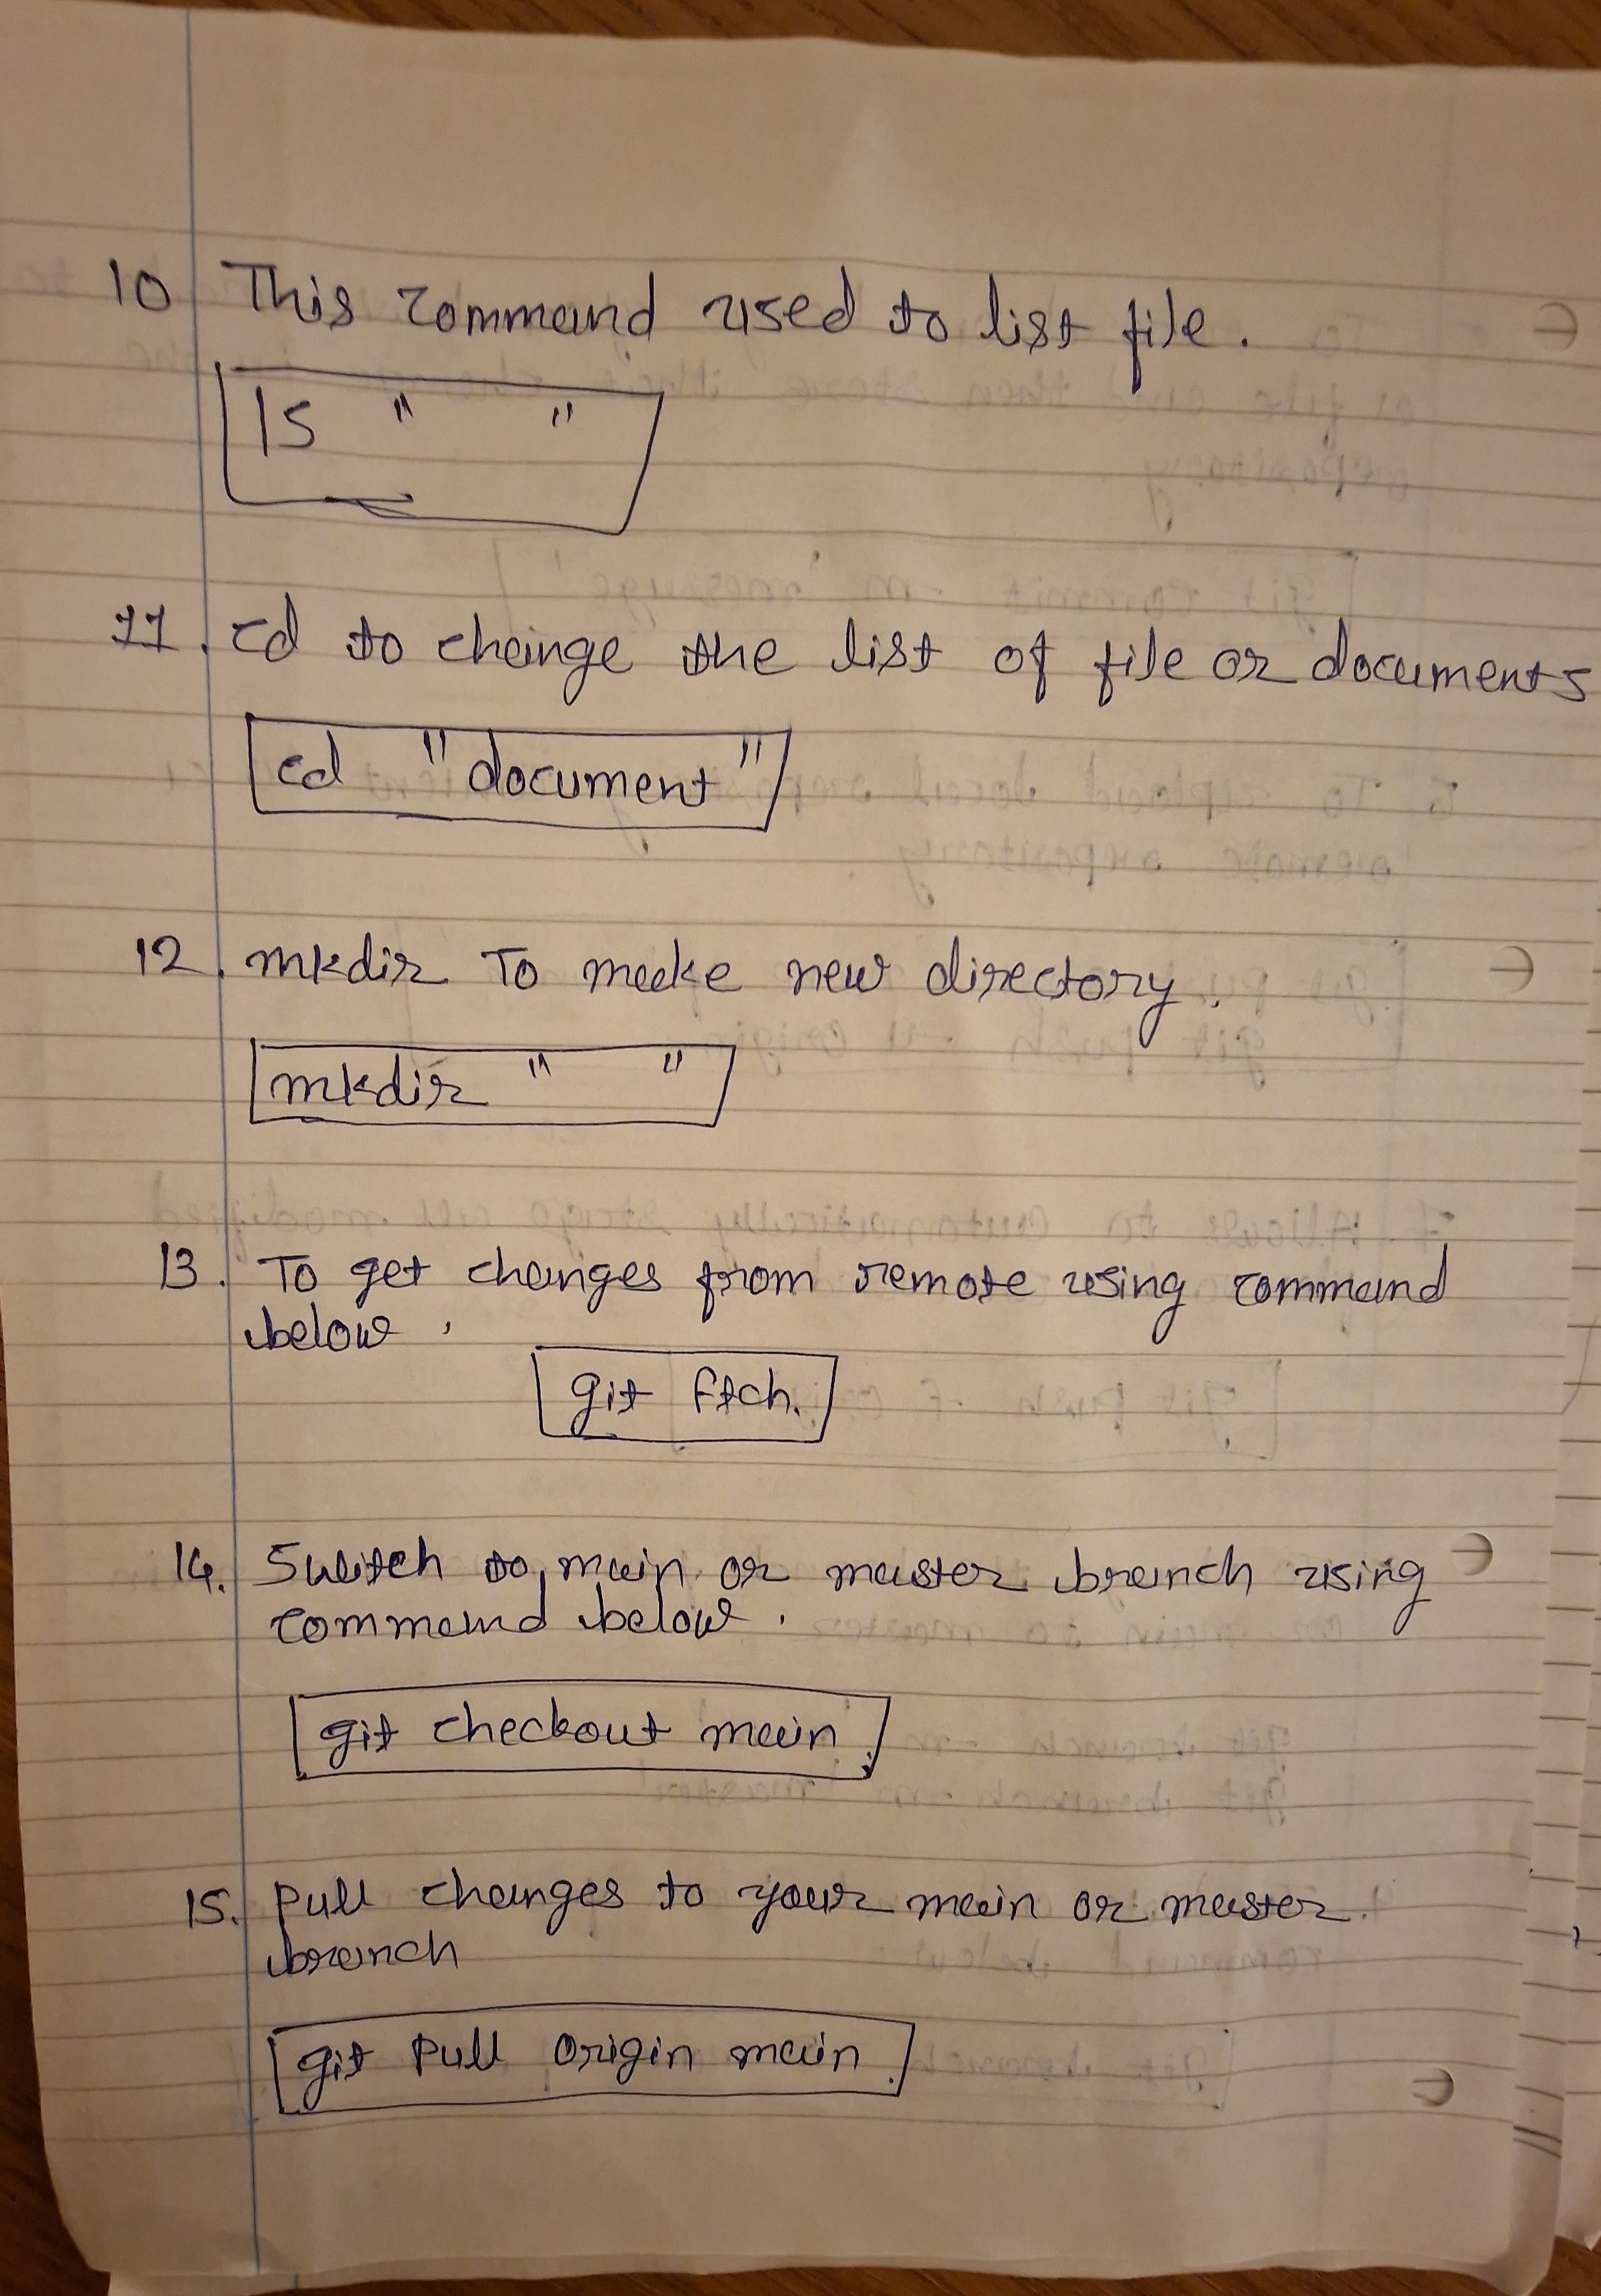 10 This command used to list file.
ls " "
11. cd to change the list of file or documents
cd "document"
12. mkdir To make new directory.
mkdir " "
13. To get changes from remote using command
below.
git ftch.
14. Switch to main or master branch using
command below.
git checkout main.
15. Pull changes to your main or master.
branch
git Pull origin main.